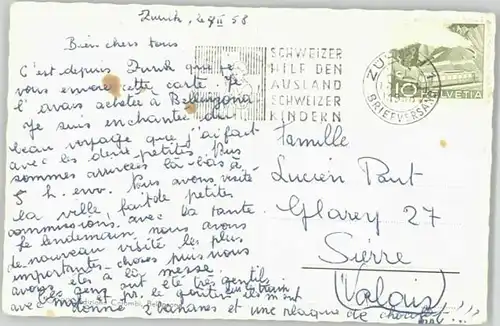 Zurich, le 9 II 58
Bien chers tous
C'est depuis Zurich que je
vous envoie cette carte. Je
l'avais achetée à Bellinzona
Je suis enchantée du
beau voyage que j'ai fait
avec les deux petites. Nous
sommes arrivées là-bas à
5 h. env. Nous avons visité
la ville, fait de petites
commissions avec la tante.
Le lendemain, nous avons
de nouveau visité les plus
importantes choses puis nous
avons été à la messe.
Les gens ont été très gentils
avec moi et pr. le goûter, ils m'ont
donné 2 bananes et une plaque de chocolat!!!
SCHWEIZER
HILF DEN
AUSLAND
SCHWEIZER
KINDERN
ZÜRICH 1
BRIEFVERSAND
10
HELVETIA
Famille
Lucien Pont
Glarey 27
Sierre
(Valais)